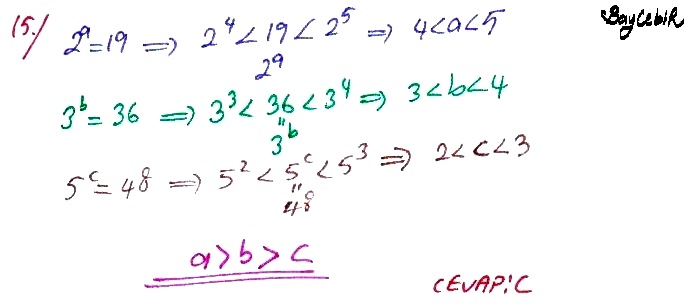 15./ 2^a=19 ⇒ 2^4 < 19 < 2^5 ⇒ 4<a<5 BayCebir
2^a
3^b = 36 ⇒ 3^3 < 36 < 3^4 ⇒ 3<b<4
"
3^b
5^c = 48 ⇒ 5^2 < 5^c < 5^3 ⇒ 2<c<3
"
48
a>b>c
CEVAP:C